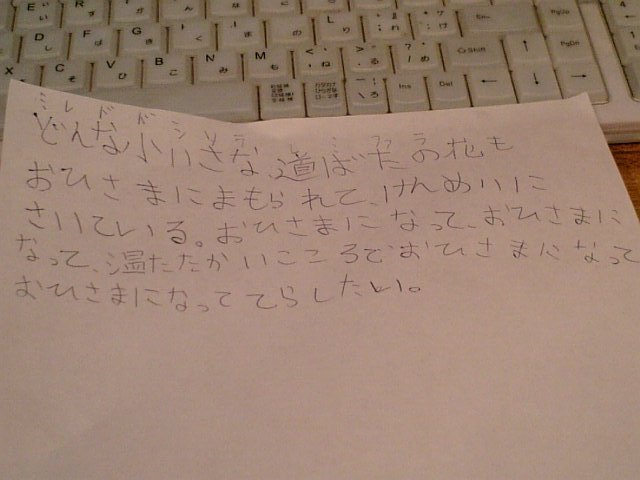 E R Y U I PgUp
D F G J K L PgDn
X C V B N M Ins Del
そ ひ こ み も ね る め ろ
Shift
ミレドドシソラ
どんな小さな道ばたの花も
おひさまにまもられて、けんめいに
さいている。おひさまになって、おひさまに
なって、温たたかいこころでおひさまになって
おひさまになっててらしたい。